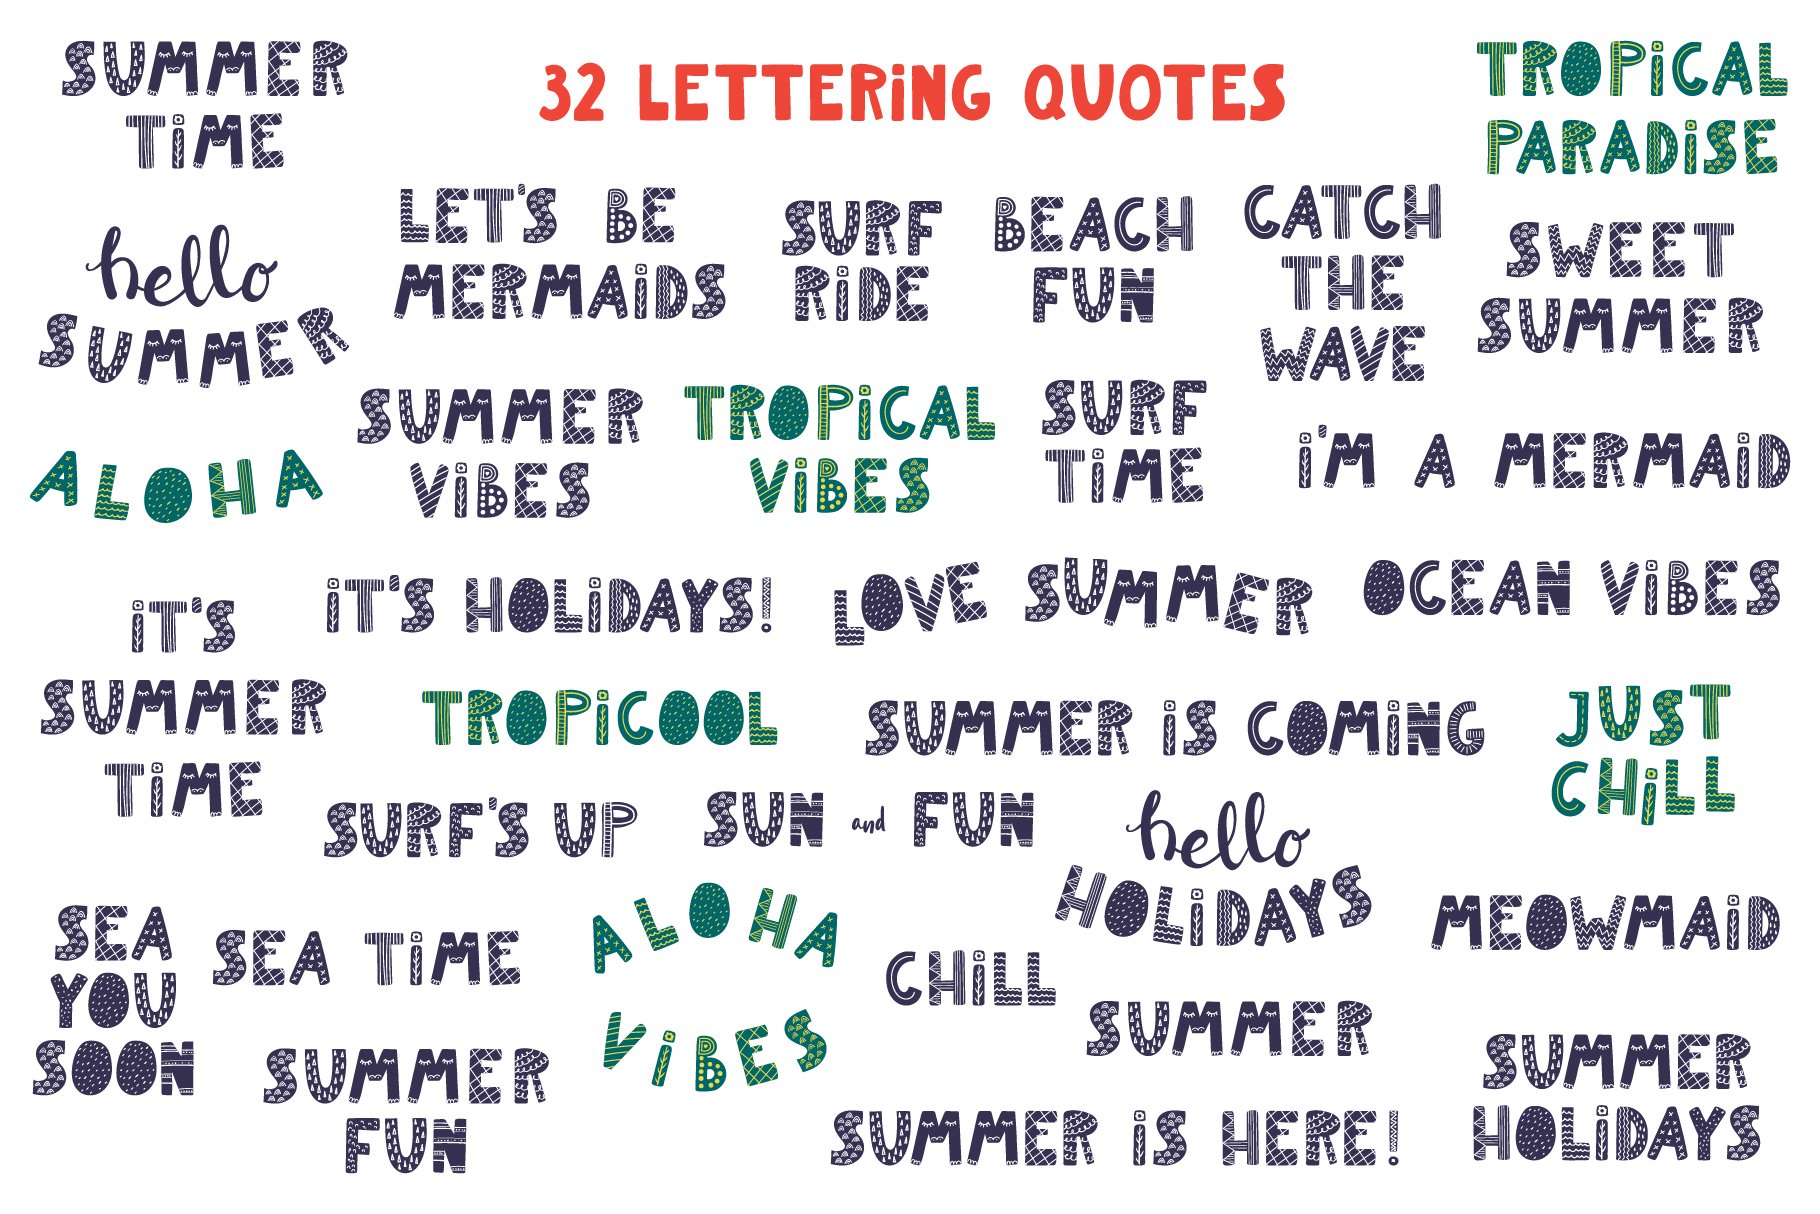 SUMMER
TiME
32 LETTERiNG QUOTES
TROPiCAL
PARADiSE
hello
SUMMER
LET'S BE
MERMAiDS
SURF
RiDE
BEACH
FUN
CATCH
THE
WAVE
SWEET
SUMMER
ALOHA
SUMMER
ViBES
TROPiCAL
ViBES
SURF
TiME
i'M A MERMAiD
iT'S
SUMMER
TiME
iT'S HOLiDAYS!
LOVE SUMMER
OCEAN ViBES
TROPiCOOL
SUMMER iS COMiNG
JUST
CHiLL
SURF'S UP
SUN and FUN
hello
HOLiDAYS
MEOWMAiD
SEA
YOU
SOON
SEA TiME
ALOHA
ViBES
CHiLL
SUMMER
SUMMER
FUN
SUMMER iS HERE!
SUMMER
HOLiDAYS